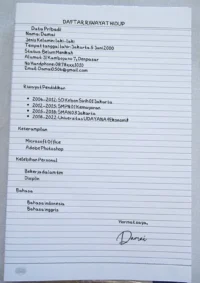 DAFTAR RIWAYAT HIDUP
Data Pribadi
Nama: Damai
Jenis Kelamin: laki-laki
Tempat tanggal lahir: Jakarta, 8 Juni 2000
Status: Belum Menikah
Alamat: Jl Kamboja no 7, Denpasar
No Handphone:
Email: Damai@gmail.com
Riwayat Pendidikan
2006-2012: SD Jakarta
2012-2015: SMPN
2015-2018: SMAN Jakarta
2018-2022: Universitas UDAYANA
Keterampilan
Microsoft Office
Adobe Photoshop
Kelebihan Personal
Bekerja dalam tim
Disiplin
Bahasa
Bahasa indonesia
Bahasa inggris
Hormat saya,
Damai